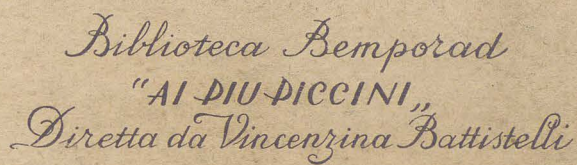 Biblioteca Bemporad
"AI PIU PICCINI„
Diretta da Vincenzina Battistelli